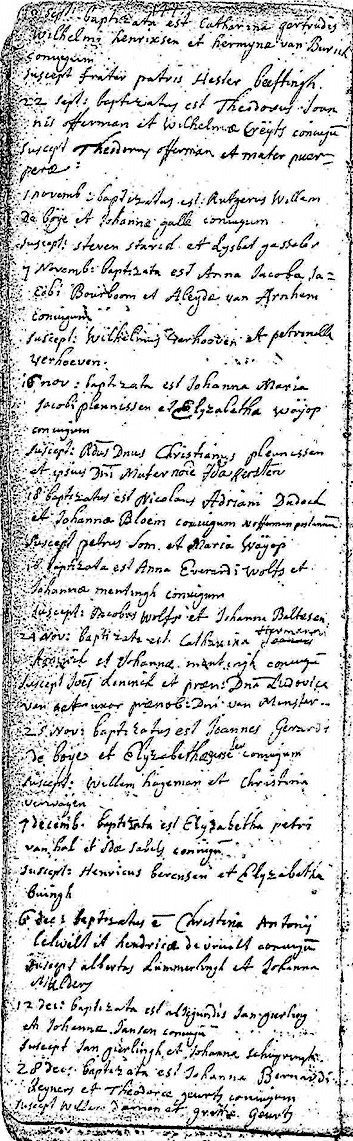 sept: baptizata est Catharina gertrudis
Wilhelmi henrixsen et hermyne van Burick
conjugum
suscept frater patris Hester beeftingh.
22 sept: baptizatus est Theodorus Joan
nis offerman et Wilhelmæ Weyts conjugū
suscept Theodorus offerman et mater puer-
peræ:
1 novemb: baptizatus est: Rutgerus Willem
de boye et Johannæ galle conjugum
suscept: steven starid et Lysbet gassels
7 Novemb: baptizata est Anna Jacoba Ja-
cobi Bourboom et Aleyde van Arnhem
conjugum
suscept: Wilhelmus Verhooven et petronella
verhoeven.
16 nov: baptizata est Johanna Maria
Jacobi pleunissen et Elyzabetha Wøjop
conjugum
suscept: Rdus Dnus Christianus pleunissen
et ipsius Dni Mater noīe Ida Kersten
18 baptizatus est Nicolaus Adriani Dadock
et Johannæ Bloem conjugum
suscept petrus Som. et Maria Wøjop
18 baptizata est Anna Everardi Wolfs et
Johannæ mentingh conjugum
suscept: Jacobus Wolfs et Johanna Baltesen
24 Nov: baptizata est Catharina Hermanni
et Johannæ mentingh conjugū
suscept Joēs Leninck et præn: Dna Ludovica
van uxor prænob: Dni van Munster
25 Nov: baptizatus est Joannes Gerardi
de boye et Elyzabethæ conjugum
suscept: Willem hageman et Christina
verwayen
4 decemb. baptizata est Elyzabetha petri
van hal et Idæ Sabels conjugū
suscept: Henricus berensen et Elyzabetha
buingh
6 dec: baptizatus ē Christina Antonij
Lelwilt et hendricæ de vruilt conjugū
suscept albertus Lummerlingh et Johanna
Mulders
12 dec: baptizata est aldegundis Jan gierling
et Johannæ Jansen conjugū
suscept Jan gierlingh et Johanna
28 dec: baptizata est Johanna Bernardi
Reyners et Theodoræ geurts conjugum
suscept Willem et gretie Geurts